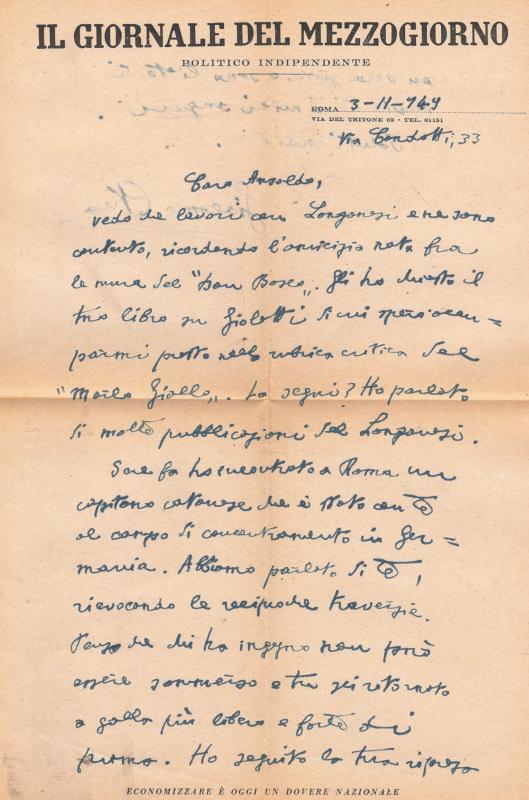 IL GIORNALE DEL MEZZOGIORNO
POLITICO INDIPENDENTE
ROMA 3-11-949
VIA DEL TRITONE 62 - TEL. 61151
Via Condotti, 33
Caro Ansaldo,
vedo che lavori con Longanesi e ne sono
contento, ricordando l'amicizia nata fra
le mura del "Don Bosco". Gli ho chiesto il
tuo libro su Giolitti di cui spero occu=
parmi presto nella rubrica critica del
"Merlo Giallo". La segui? Ho parlato
di molte pubblicazioni del Longanesi.
Sere fa ho incontrato a Roma un
capitano catanese che è stato con Te
al campo di concentramento in Ger=
mania. Abbiamo parlato di Te,
rievocando le reciproche traversie.
Penso che chi ha ingegno non può
essere sommerso e tu sei ritornato
a galla più libero e forte di
prima. Ho seguito la tua ripresa
ECONOMIZZARE È OGGI UN DOVERE NAZIONALE